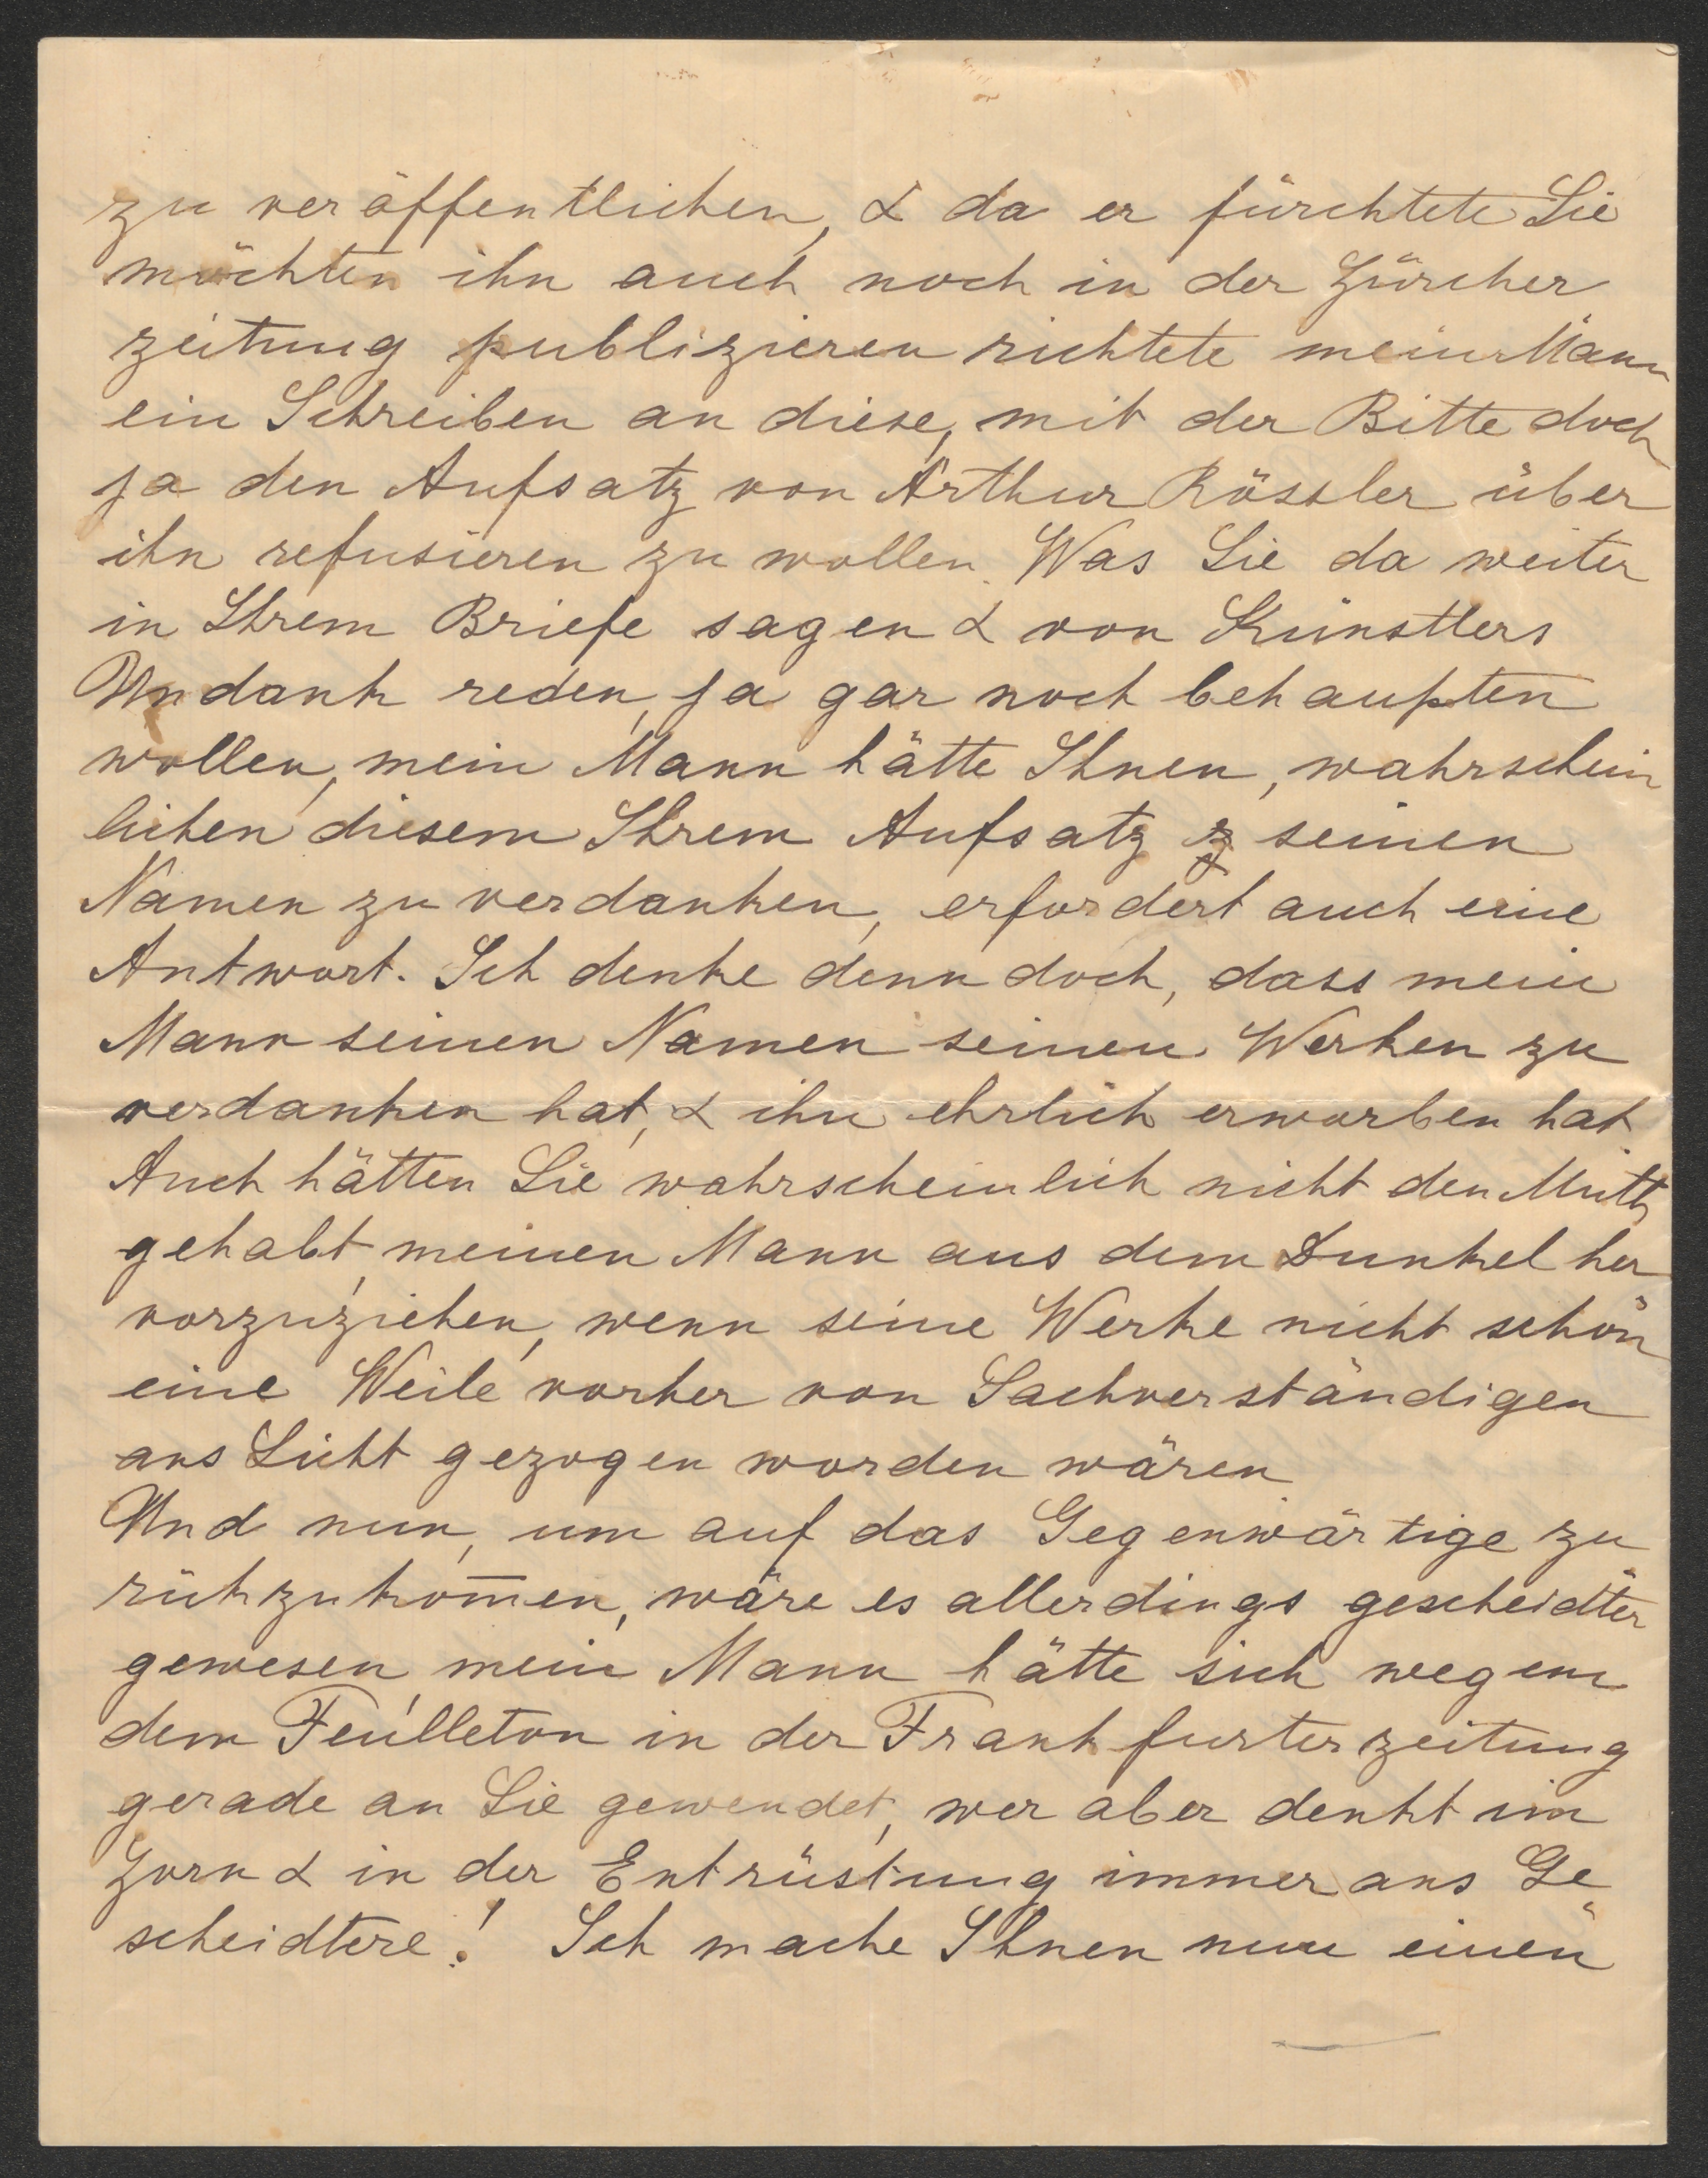 zu veröffentlichen, & da er fürchtete Sie
möchten ihn auch noch in der Zürcher
zeitung publizieren richtete mein Mann
ein Schreiben an diese, mit der Bitte doch
ja den Aufsatz von Arthur Rössler über
ihn refusieren zu wollen. Was Sie da weiter
in Ihrem Briefe sagen & von Künstlers
Undank reden, ja gar noch behaupten
wollen, mein Mann hätte Ihnen, wahrschein
lichen diesem Ihrem Aufsatz seinen
Namen zu verdanken, erfordert auch eine
Antwort. Ich denke denn doch, dass mein
Mann seinen Namen seinen Werken zu
verdanken hat, & ihn ehrlich erworben hat
Auch hätten Sie wahrscheinlich nicht den Muth
gehabt, meinen Mann aus dem Dunkel her
vorzuziehen, wenn seine Werke nicht schon
eine Weile vorher von Sachverständigen
ans Licht gezogen worden wären
Und nun, um auf das Gegenwärtige zu
rükzukom̅en, wäre es allerdings gescheidter
gewesen, mein Mann hätte sich wegen
dem Feuilleton in der Frankfurterzeitung
gerade an Sie gewendet, wer aber denkt im
Zorn & in der Entrüstung immer ans Ge
scheidtere! Ich mache Ihnen nun einen